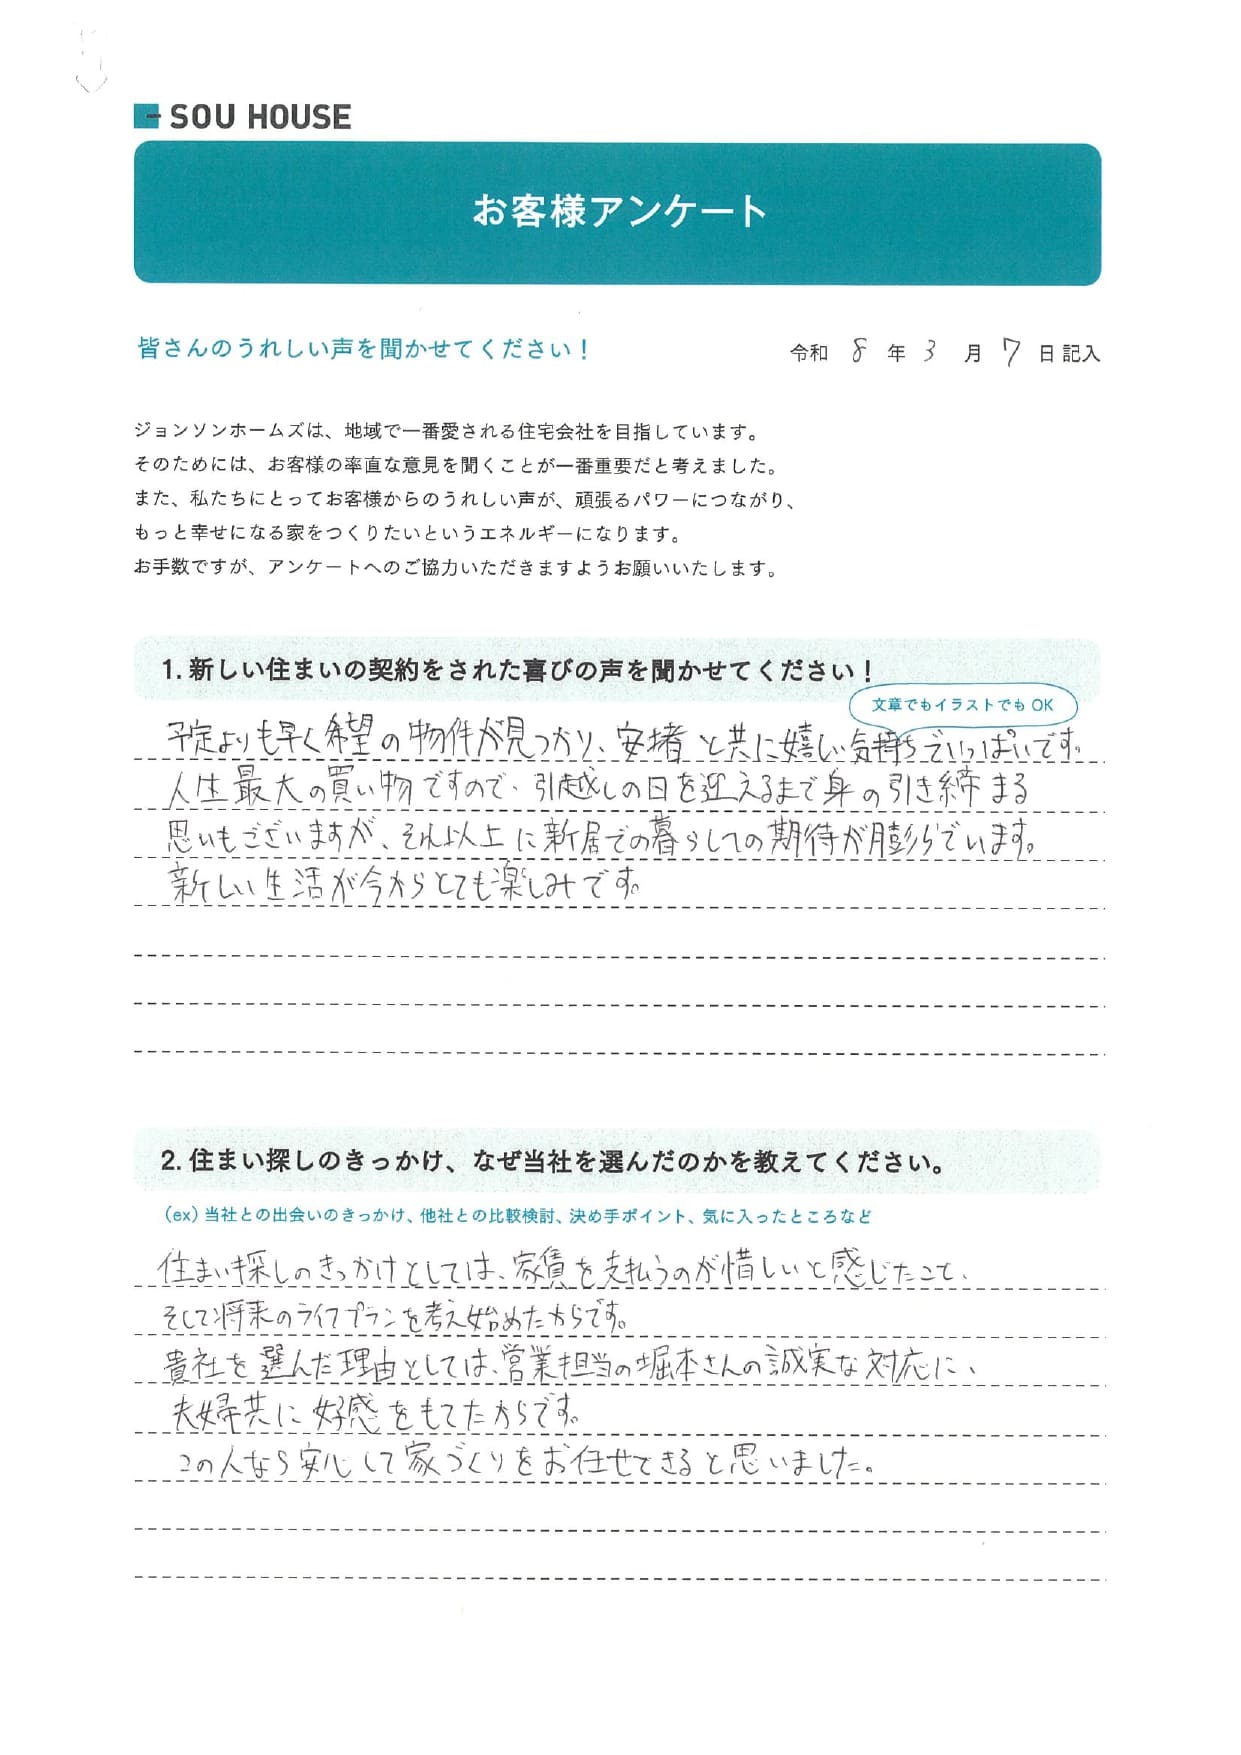 SOU HOUSE
お客様アンケート
皆さんのうれしい声を聞かせてください！
令和 8 年 3 月 7 日 記入
ジョンソンホームズは、地域で一番愛される住宅会社を目指しています。
そのためには、お客様の率直な意見を聞くことが一番重要だと考えました。
また、私たちにとってお客様からのうれしい声が、頑張るパワーにつながり、
もっと幸せになる家をつくりたいというエネルギーになります。
お手数ですが、アンケートへのご協力いただきますようお願いいたします。
1. 新しい住まいの契約をされた喜びの声を聞かせてください！
文章でもイラストでも OK
予定よりも早く希望の物件が見つかり、安堵と共に嬉しい気持ちでいっぱいです。
人生最大の買い物ですので、引越しの日を迎えるまで身の引き締まる
思いもございますが、それ以上に新居での暮らしへの期待が膨らでいます。
新しい生活が今からとても楽しみです。
2. 住まい探しのきっかけ、なぜ当社を選んだのかを教えてください。
（ex）当社との出会いのきっかけ、他社との比較検討、決め手ポイント、気に入ったところなど
住まい探しのきっかけとしては、家賃を支払うのが惜しいと感じたこと、
そして将来のライフプランを考え始めたからです。
貴社を選んだ理由としては、営業担当の堀本さんの誠実な対応に、
夫婦共に好感をもてたからです。
この人なら安心して家づくりをお任せできると思いました。